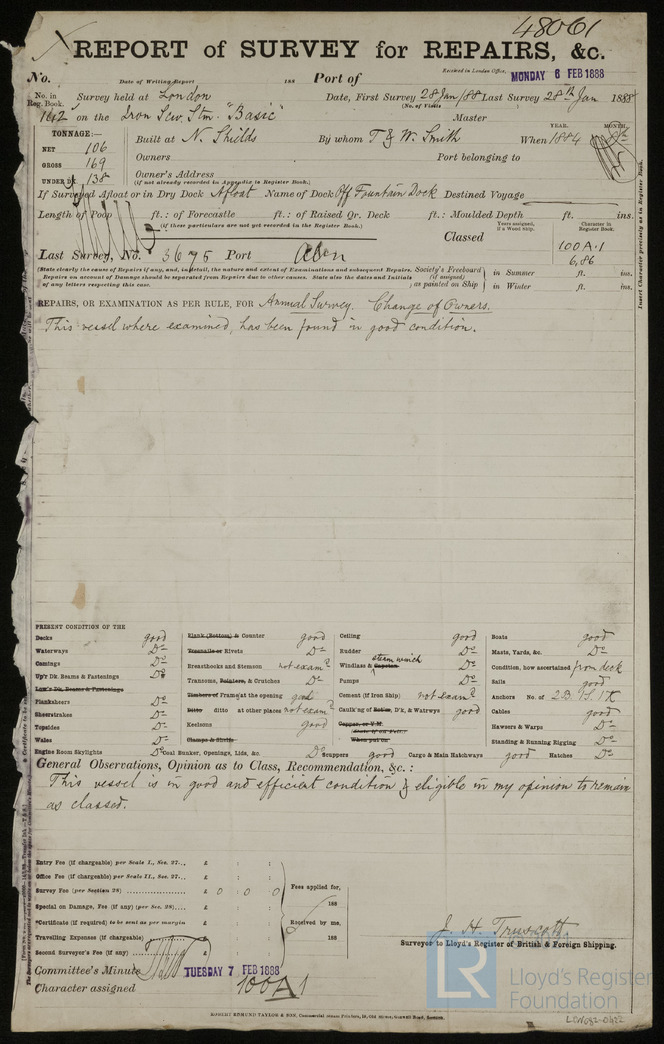 48061
REPORT of SURVEY for REPAIRS, &c.
Received in London Office, MONDAY 6 FEB 1888
No. Date of Writing Report 188 Port of
No. in Reg. Book. Survey held at London Date, First Survey 28 Jan/88 Last Survey 28th Jan 1888
(No. of Visits
on the Iron Scw. Stm. "Basic" Master
TONNAGE:—
NET 106
GROSS 169
UNDER DK. 138
Built at N. Shields By whom T & W. Smith When 1884
YEAR. MONTH.
Owners Port belonging to
Owner's Address
(if not already recorded in Appendix to Register Book.)
If Surveyed Afloat or in Dry Dock Afloat Name of Dock Off Fountain Dock Destined Voyage
Length of Poop ft.: of Forecastle ft.: of Raised Qr. Deck ft.: Moulded Depth ft. ins.
(if these particulars are not yet recorded in the Register Book.)
Years assigned, if a Wood Ship. Character in Register Book.
Classed 100A.1
6,86
Last Survey, No. 3675 Port Abn
(State clearly the cause of Repairs if any, and, in detail, the nature and extent of Examinations and subsequent Repairs.
Repairs on account of Damage should be separated from Repairs due to other causes. State also the dates and Initials
of any letters respecting this case.
Society's Freeboard (if assigned) as painted on Ship in Summer ft. ins.
in Winter ft. ins.
Insert Character precisely as in Register Book.
REPAIRS, OR EXAMINATION AS PER RULE, FOR Annual Survey. Change of Owners.
This vessel where examined, has been found in good condition.
PRESENT CONDITION OF THE
Decks good
Waterways Do
Comings Do
Up'r Dk. Beams & Fastenings Do
Low'r Dk. Beams & Fastenings
Planksheers Do
Sheerstrakes Do
Topsides Do
Wales Do
Engine Room Skylights Do
Plank (Bottom) & Counter good
Treenails or Rivets Do
Breasthooks and Stemson not examd
Transoms, Pointers, & Crutches Do
Timbers or Frames at the opening good
Ditto ditto at other places not examd
Keelsons good
Clamps & Shelfs
Coal Bunker, Openings, Lids, &c. Do
Ceiling good
Rudder Do
Windlass & Capstan steam winch Do
Pumps Do
Cement (if Iron Ship) not examd
Caulk'ng of Bot'm, D'k, & Watrwys good
Copper, or Y.M.
When put on
Scuppers good Cargo & Main Hatchways good Hatches Do
Boats good
Masts, Yards, &c. Do
Condition, how ascertained from deck
Sails good
Anchors No. of 2B. 1S. 1K
Cables good
Hawsers & Warps Do
Standing & Running Rigging Do
General Observations, Opinion as to Class, Recommendation, &c.:
This vessel is in good and efficient condition & eligible in my opinion to remain
as classed.
Entry Fee (if chargeable) per Scale I., Sec. 27.., £ : :
Office Fee (if chargeable) per Scale II., Sec. 27.., £ : :
Survey Fee (per Section 28) £ 0 : 0 : 0
Special on Damage, Fee (if any) (per Sec. 28).... £ : :
*Certificate (if required) to be sent as per margin £ : :
Travelling Expenses (if chargeable) £ : :
Second Surveyor's Fee (if any) £ : :
Fees applied for, 188
Received by me, 188
J. H. Truscott.
Surveyor to Lloyd's Register of British & Foreign Shipping.
Committee's Minute TUESDAY 7 FEB 1888
Character assigned 100A1
LR Lloyd's Register Foundation